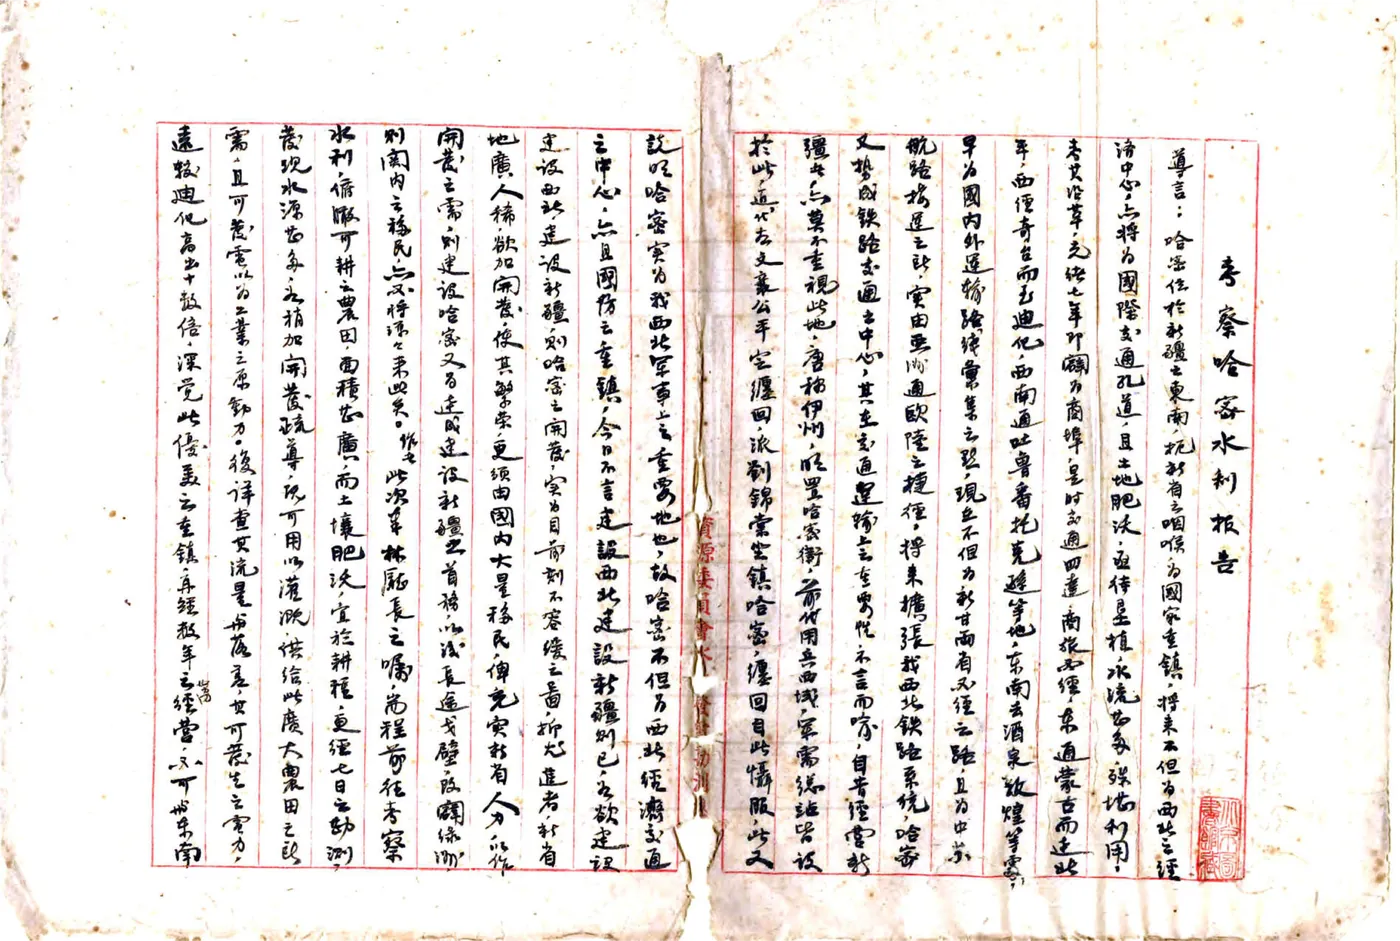 考察哈密水利報告
導言：哈密位於新疆之東南，扼新省之咽喉，為國家重鎮，將來不但為西北之經
濟中心，亦將為國際交通孔道，且土地肥沃，亟待墾植，水流甚多，殊堪利用，
考其沿革，光緒七年即闢為商埠，是時交通四達，商旅必經，東通蒙古而達北
平，西經奇台而至迪化，西南通吐魯番托克遜等地，東南去酒泉敦煌等處，
早為國內外運輸路線彙集之點，現在不但為新甘兩省必經之路，且為中蘇
航路接運之所，實由亞洲通歐陸之捷徑，將來擴張我西北鐵路系統，哈密
又勢成鉄路交通之中心，其在交通運輸上之重要性不言而喻，自昔經營新
疆者，亦莫不重視此地，唐稱伊州，明置哈密衛，前代用兵西域，軍需總站皆設
於此，近代左文襄公平定纏回，派劉錦棠坐鎮哈密，纏回自此懾服，此又
說明哈密實為我西北軍事上之重要地也，故哈密不但為西北經濟交通
之中心，亦且國防之重鎮，今日不言建設西北建設新疆則已，若欲建設
建設西北，建設新疆，則哈密之開發，实為目前刻不容緩之圖，抑尤進者，新省
地廣人稀，欲加開發，使其繁荣，更須由國內大量移民，俾充实新省人力，以作
開發之需，則建設哈密又為達成建設新疆之首務，以淺長途戈壁，改闢綠洲，
則関內之移民，亦必將源々來此矣。作七此次奉林廳長之囑，耑程前往考察
水利，俯瞰可耕之農田，面積甚廣，而土壤肥沃，宜於耕種，更經七日之勘測，
發現水源甚多，若稍加開發疏導，既可用以灌溉，供給此廣大農田之所
需，且可發電以為工業之原動力。後詳查其流量與落差，其可發生之電力，
遠較迪化高出十数倍，深覺此優美之重鎮，再經数年之經營，必可與東南
資源委員會水
發
勘測